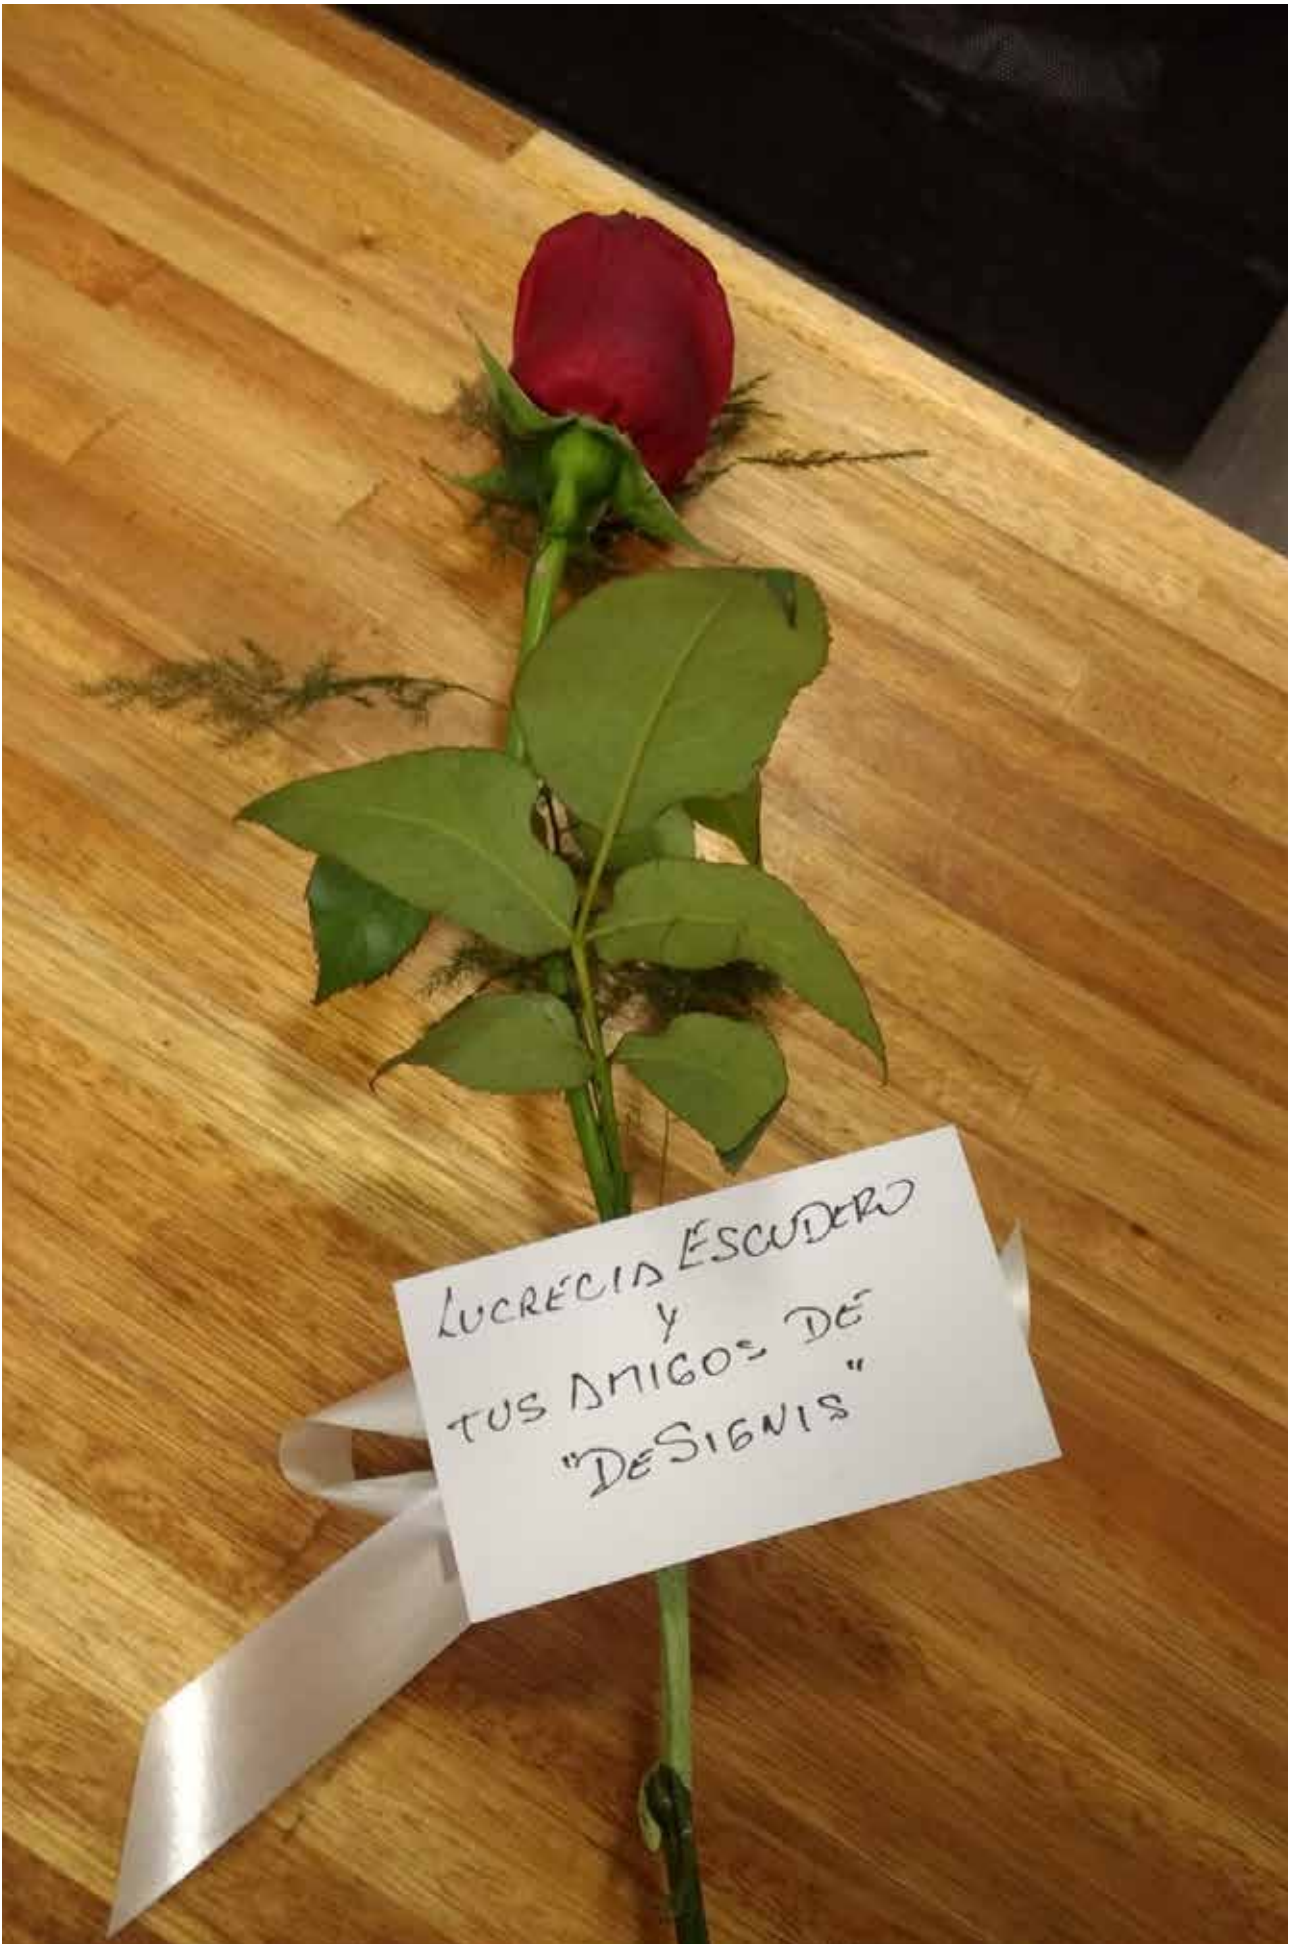 LUCRECIA ESCUDERO
Y
TUS AMIGOS DE
"DeSIGNIS"